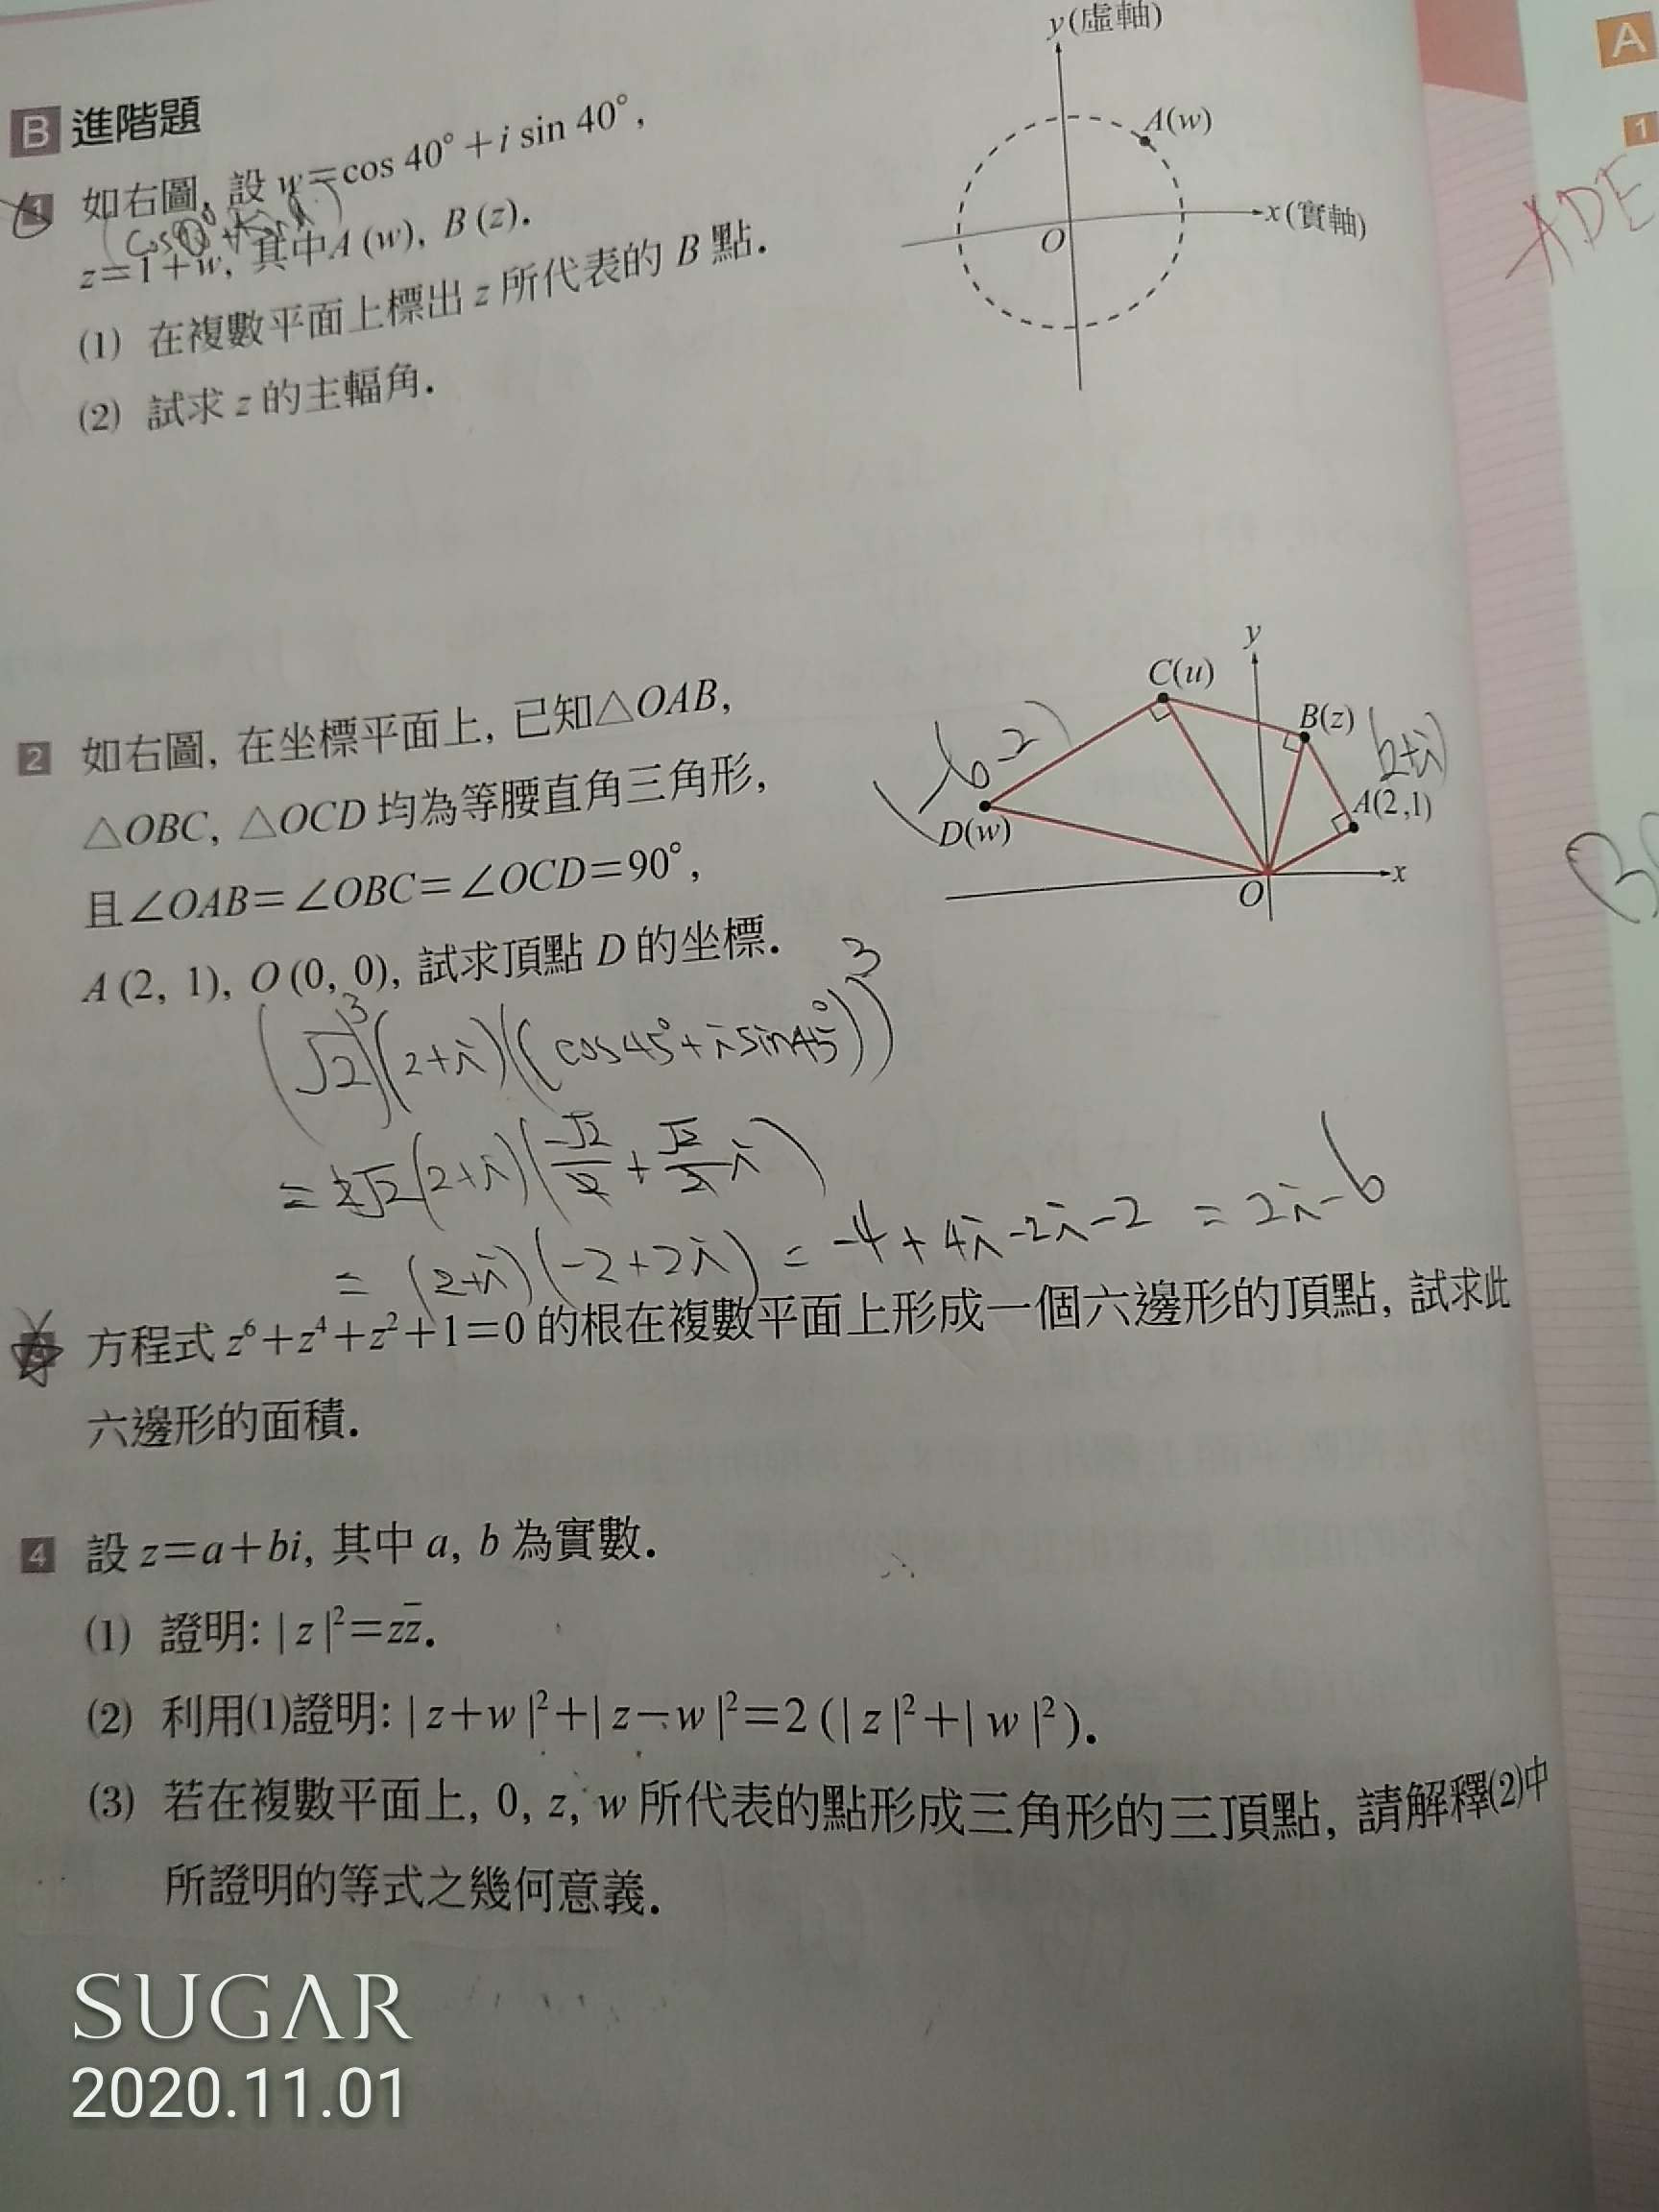 B 進階題
1 如右圖, 設 w=cos 40°+i sin 40°,
z=1+w, 其中A (w), B (z).
(1) 在複數平面上標出 z 所代表的 B 點.
(2) 試求 z 的主輻角.
y(虛軸)
A(w)
x(實軸)
O
2 如右圖, 在坐標平面上, 已知△OAB,
△OBC, △OCD 均為等腰直角三角形,
且∠OAB=∠OBC=∠OCD=90°,
A (2, 1), O (0, 0), 試求頂點 D 的坐標.
y
C(u)
B(z)
A(2,1)
D(w)
O
x
(√2)³(2+i)((cos45°+isin45°))³
=2√2(2+i)(-√2/2+√2/2 i)
= (2+i)(-2+2i) = -4+4i-2i-2 = 2i-6
3 方程式 z⁶+z⁴+z²+1=0 的根在複數平面上形成一個六邊形的頂點, 試求此
六邊形的面積.
4 設 z=a+bi, 其中 a, b 為實數.
(1) 證明: | z |²=zz̅.
(2) 利用(1)證明: | z+w |²+| z−w |²=2 (| z |²+| w |²).
(3) 若在複數平面上, 0, z, w 所代表的點形成三角形的三頂點, 請解釋(2)中
所證明的等式之幾何意義.
A
1
ADE
SUGAR
2020.11.01